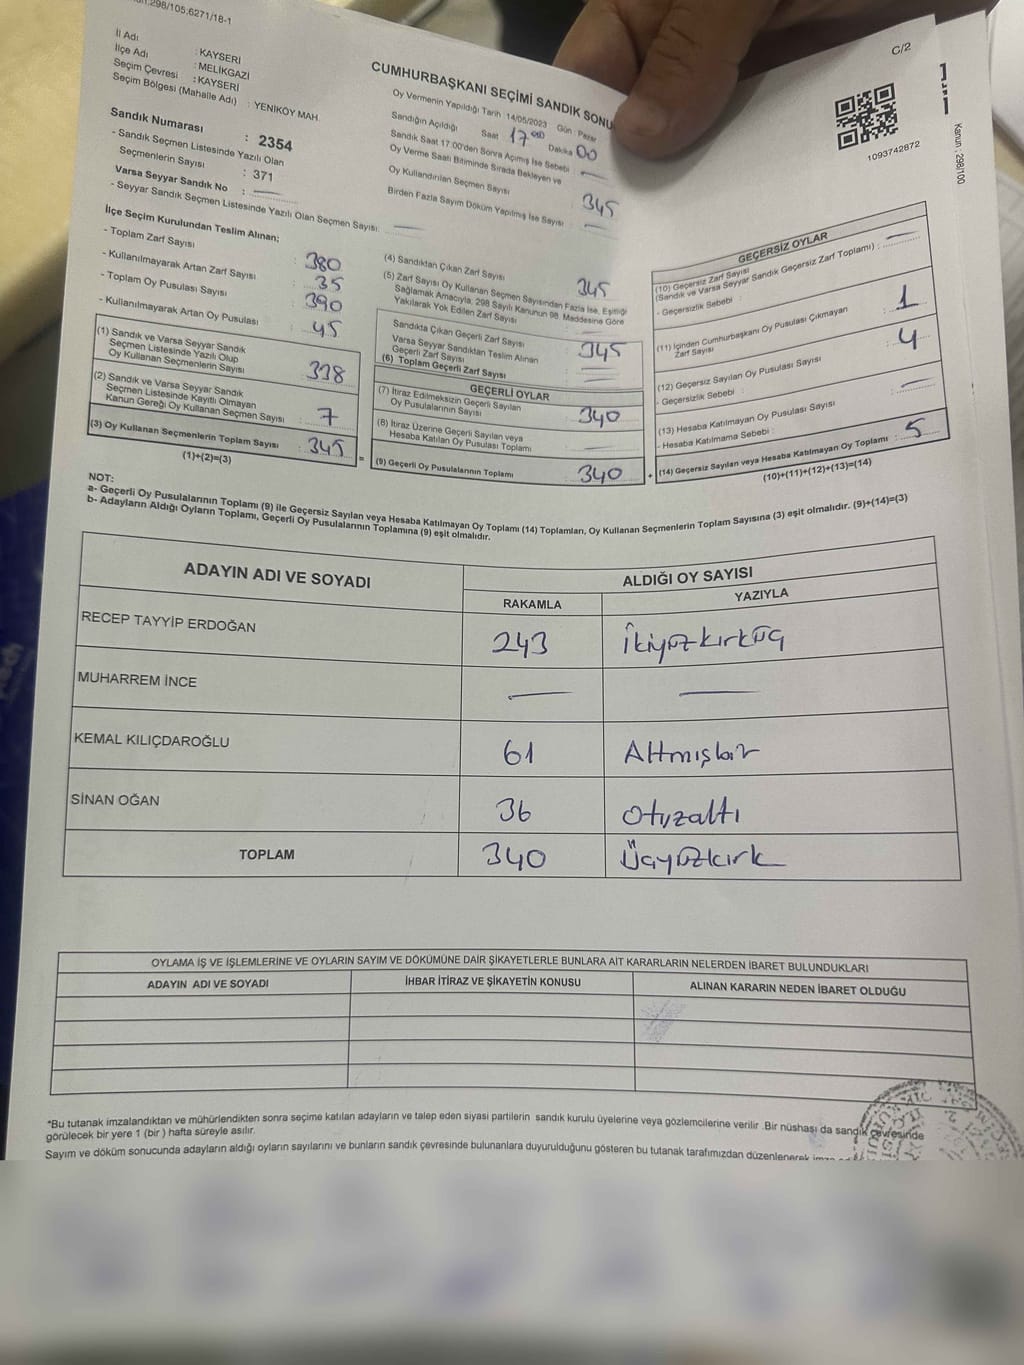 298/105;6271/18-1
C/2
İl Adı : KAYSERİ
İlçe Adı : MELİKGAZİ
Seçim Çevresi : KAYSERİ
Seçim Bölgesi (Mahalle Adı) : YENİKÖY MAH.
Sandık Numarası : 2354
- Sandık Seçmen Listesinde Yazılı Olan
Seçmenlerin Sayısı : 371
Varsa Seyyar Sandık No : —
- Seyyar Sandık Seçmen Listesinde Yazılı Olan Seçmen Sayısı: —
CUMHURBAŞKANI SEÇİMİ SANDIK SONU
Oy Vermenin Yapıldığı Tarih : 14/05/2023 Gün : Pazar
Sandığın Açıldığı Saat 17 Dakika 00
Sandık Saat 17:00'den Sonra Açılmış İse Sebebi —
Oy Verme Saati Bitiminde Sırada Bekleyen ve
Oy Kullandırılan Seçmen Sayısı 345
Birden Fazla Sayım Döküm Yapılmış İse Sayısı —
1093742872
Kanun : 298/100
İlçe Seçim Kurulundan Teslim Alınan;
- Toplam Zarf Sayısı : 380
- Kullanılmayarak Artan Zarf Sayısı : 35
- Toplam Oy Pusulası Sayısı : 390
- Kullanılmayarak Artan Oy Pusulası : 45
(1) Sandık ve Varsa Seyyar Sandık
Seçmen Listesinde Yazılı Olup
Oy Kullanan Seçmenlerin Sayısı : 338
(2) Sandık ve Varsa Seyyar Sandık
Seçmen Listesinde Kayıtlı Olmayan
Kanun Gereği Oy Kullanan Seçmen Sayısı : 7
(3) Oy Kullanan Seçmenlerin Toplam Sayısı : 345
(1)+(2)=(3)
(4) Sandıktan Çıkan Zarf Sayısı 345
(5) Zarf Sayısı Oy Kullanan Seçmen Sayısından Fazla İse, Eşitliği
Sağlamak Amacıyla, 298 Sayılı Kanunun 98. Maddesine Göre
Yakılarak Yok Edilen Zarf Sayısı
Sandıkta Çıkan Geçerli Zarf Sayısı 345
Varsa Seyyar Sandıktan Teslim Alınan
Geçerli Zarf Sayısı —
(6) Toplam Geçerli Zarf Sayısı —
GEÇERLİ OYLAR
(7) İtiraz Edilmeksizin Geçerli Sayılan
Oy Pusulalarının Sayısı 340
(8) İtiraz Üzerine Geçerli Sayılan veya
Hesaba Katılan Oy Pusulası Toplamı —
(9) Geçerli Oy Pusulalarının Toplamı 340
GEÇERSİZ OYLAR
(10) Geçersiz Zarf Sayısı
(Sandık ve Varsa Seyyar Sandık Geçersiz Zarf Toplamı) : —
- Geçersizlik Sebebi :
(11) İçinden Cumhurbaşkanı Oy Pusulası Çıkmayan
Zarf Sayısı : 1
(12) Geçersiz Sayılan Oy Pusulası Sayısı : 4
- Geçersizlik Sebebi :
(13) Hesaba Katılmayan Oy Pusulası Sayısı : —
- Hesaba Katılmama Sebebi :
(14) Geçersiz Sayılan veya Hesaba Katılmayan Oy Toplamı : 5
(10)+(11)+(12)+(13)=(14)
NOT:
a- Geçerli Oy Pusulalarının Toplamı (9) ile Geçersiz Sayılan veya Hesaba Katılmayan Oy Toplamı (14) Toplamları, Oy Kullanan Seçmenlerin Toplam Sayısına (3) eşit olmalıdır. (9)+(14)=(3)
b- Adayların Aldığı Oyların Toplamı, Geçerli Oy Pusulalarının Toplamına (9) eşit olmalıdır.
ADAYIN ADI VE SOYADI ALDIĞI OY SAYISI
RAKAMLA YAZIYLA
RECEP TAYYİP ERDOĞAN 243 İkiyüzkırküç
MUHARREM İNCE — —
KEMAL KILIÇDAROĞLU 61 Altmışbir
SİNAN OĞAN 36 Otuzaltı
TOPLAM 340 Üçyüzkırk
OYLAMA İŞ VE İŞLEMLERİNE VE OYLARIN SAYIM VE DÖKÜMÜNE DAİR ŞİKAYETLERLE BUNLARA AİT KARARLARIN NELERDEN İBARET BULUNDUKLARI
ADAYIN ADI VE SOYADI İHBAR İTİRAZ VE ŞİKAYETİN KONUSU ALINAN KARARIN NEDEN İBARET OLDUĞU
*Bu tutanak imzalandıktan ve mühürlendikten sonra seçime katılan adayların ve talep eden siyasi partilerin sandık kurulu üyelerine veya gözlemcilerine verilir .Bir nüshası da sandık çevresinde
görülecek bir yere 1 (bir ) hafta süreyle asılır.
Sayım ve döküm sonucunda adayların aldığı oyların sayılarını ve bunların sandık çevresinde bulunanlara duyurulduğunu gösteren bu tutanak tarafımızdan düzenlenerek